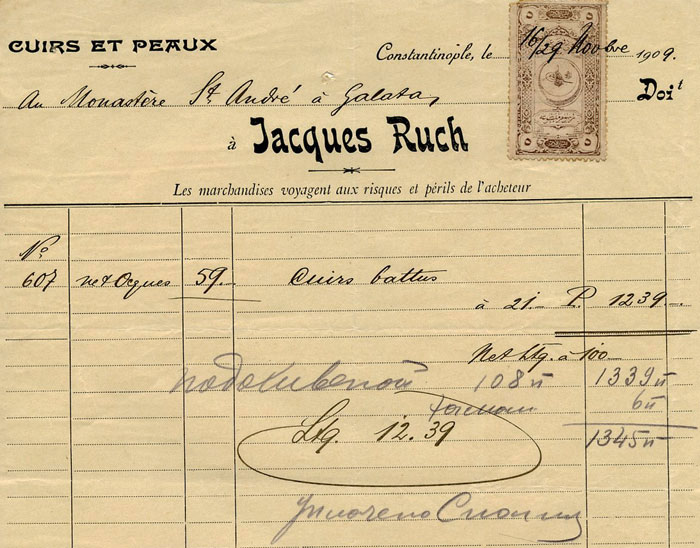 CUIRS ET PEAUX
Constantinople, le 16/29 Novbre 1909.
Au Monastère St. André à Galata, Doit
à Jacques Ruch
Les marchandises voyagent aux risques et périls de l'acheteur
No
607 net Ocques 59.- Cuirs battus
à 21.- P. 1239.-
Net Ltq. à 100-
108 1339
6
Ltq. 12.39 1345